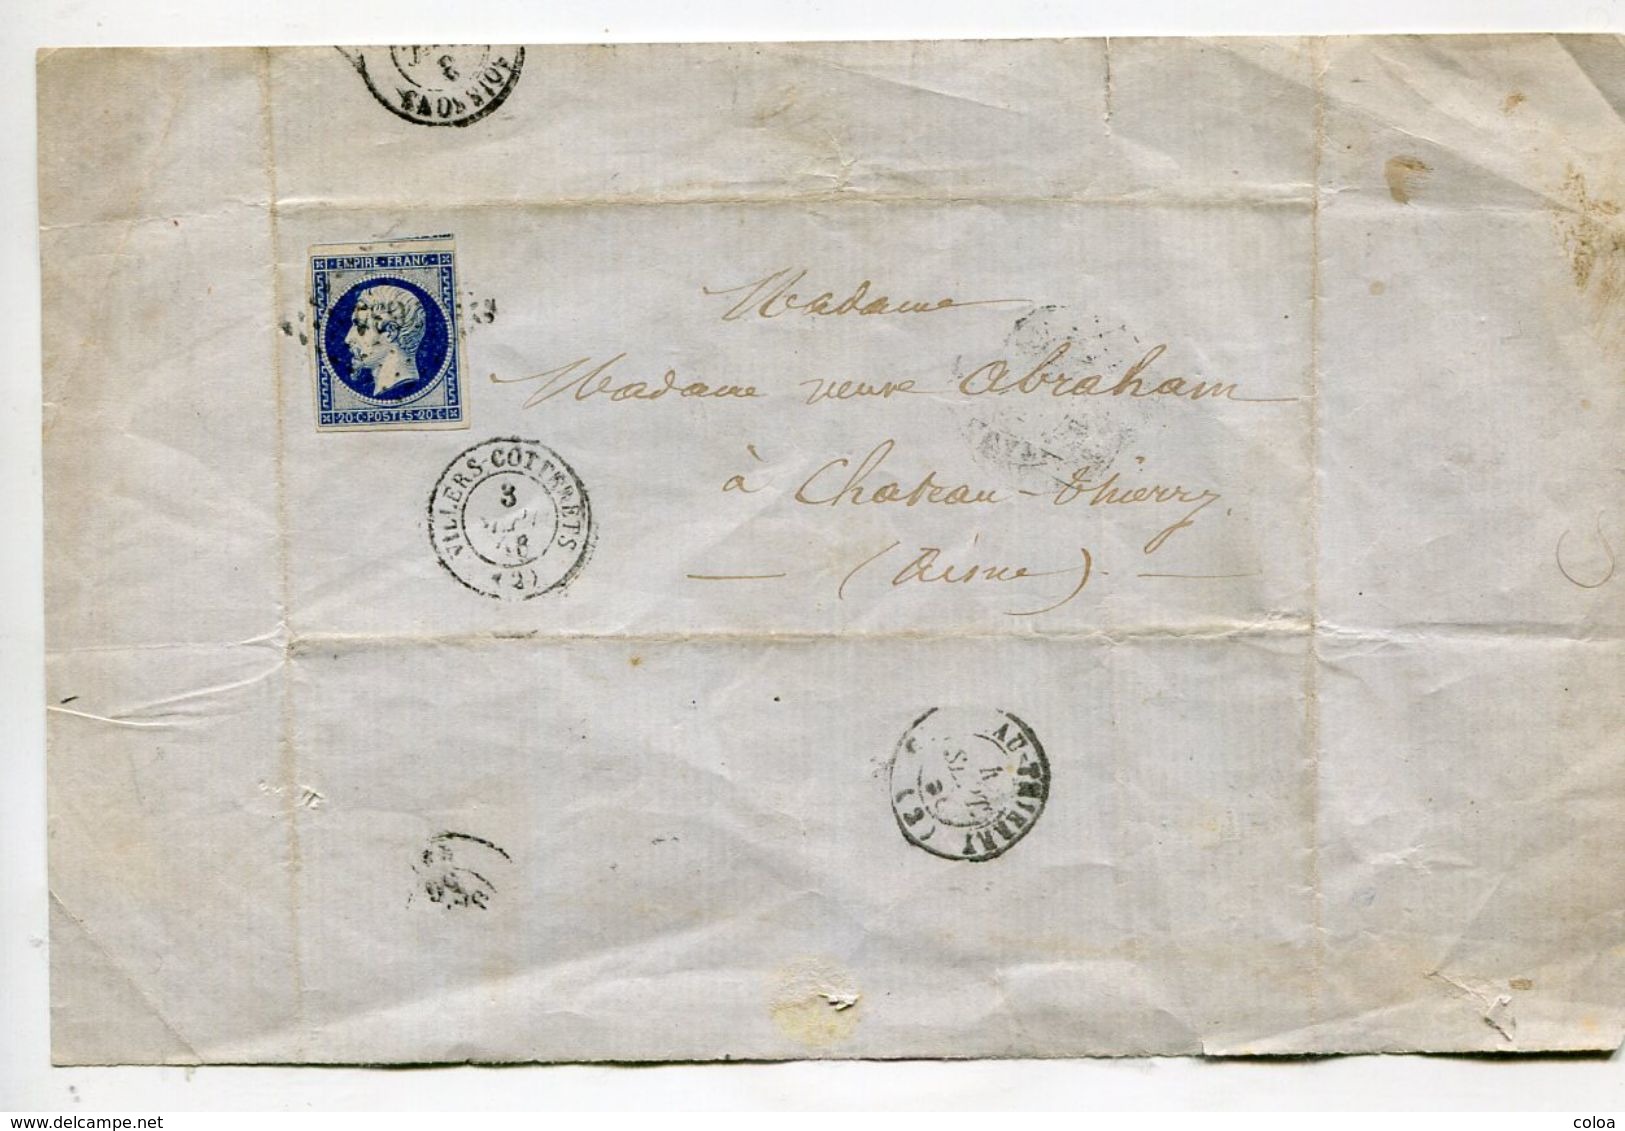 SOISSONS
3
EMPIRE · FRANC ·
20 · C · POSTES · 20 · C ·
Madame
Madame veuve Abraham
à Chateau-Thierry
(Aisne)
VILLERS-COTTERETS
3
SEPT
(2)
AU-THIERRY
4
SEPT
(2)
56
www.delcampe.net
coloa